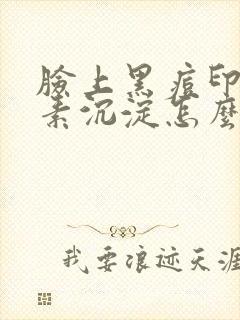 臉上黑痘印
素沉淀怎麼
我要浪迹天涯